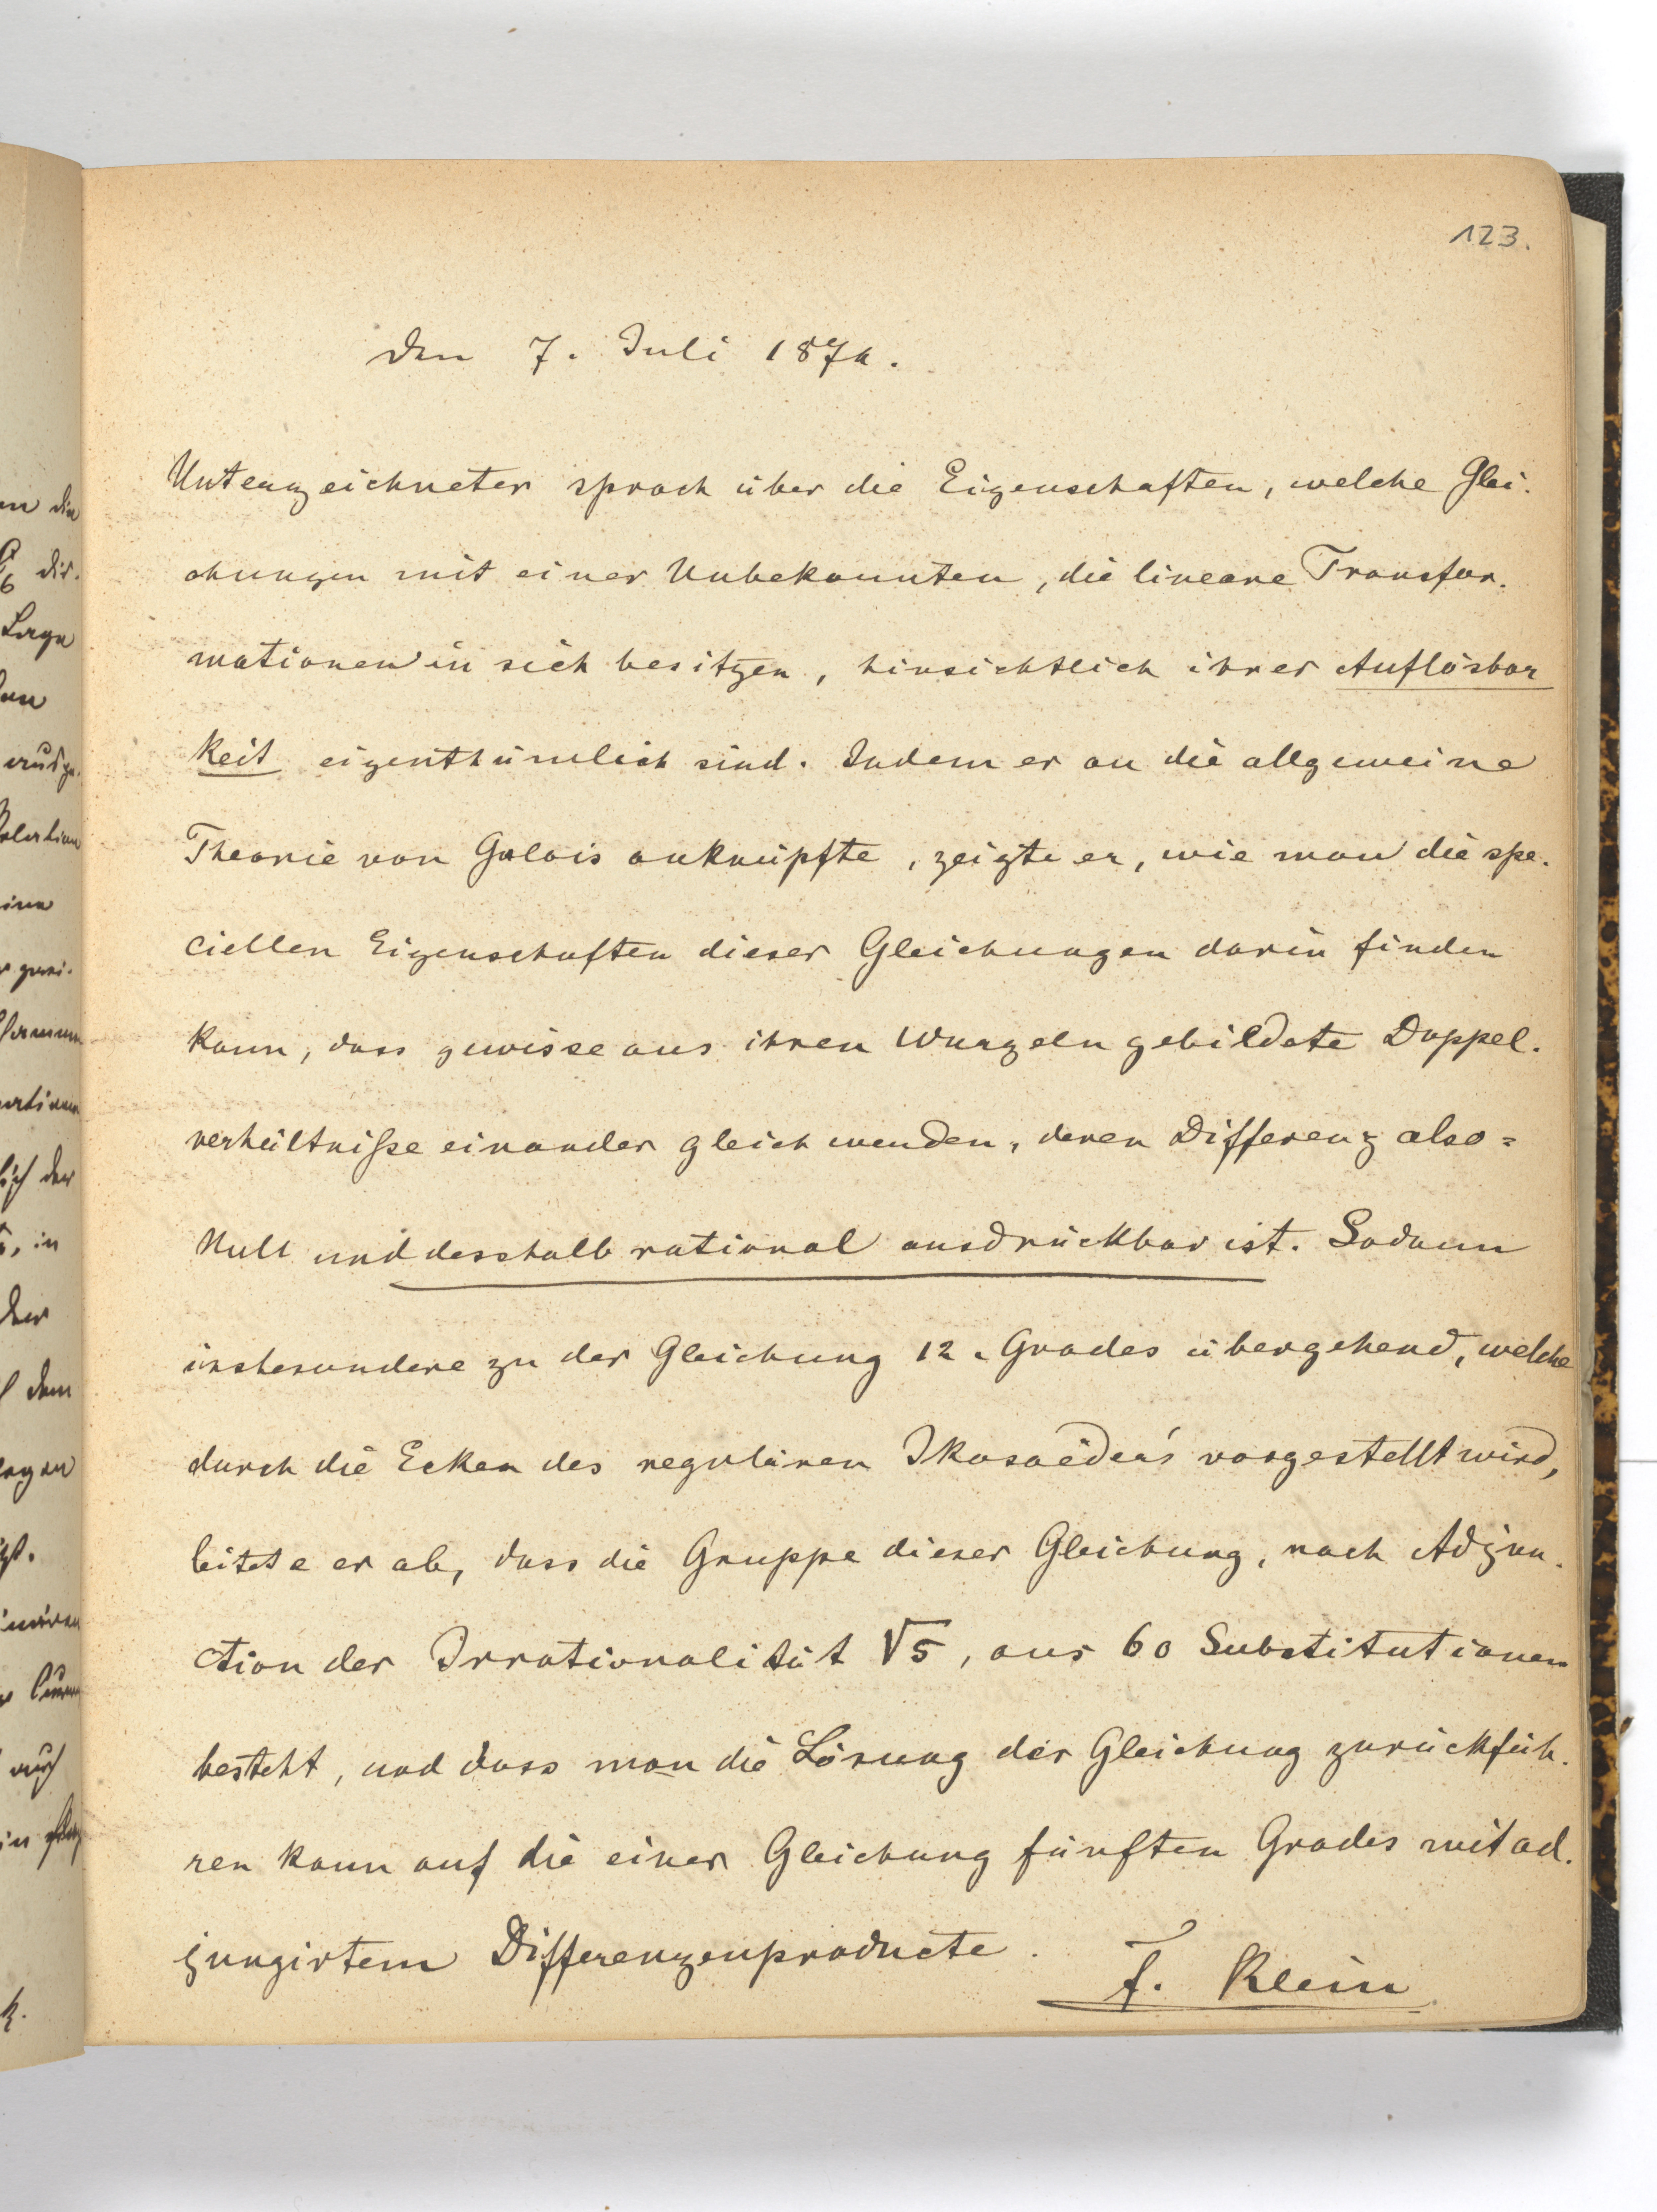 123.
den 7. Juli 1874.
Unterzeichneter sprach über die Eigenschaften, welche Glei-
chungen mit einer Unbekannten, die lineare Transfor-
mationen in sich besitzen, hinsichtlich ihrer Auflösbar
keit eigenthümlich sind. Indem er an die allgemeine
Theorie von Galois anknüpfte, zeigte er, wie man die spe-
ciellen Eigenschaften dieser Gleichungen darin finden
kann, dass gewisse aus ihren Wurzeln gebildete Doppel-
verhältniße einander gleich werden, deren Differenz also =
Null und desshalb rational ausdrückbar ist. Sodann
insbesondere zu der Gleichung 12. Grades übergehend, welche
durch die Ecken des regulären Ikosaëder's vorgestellt wird,
leitete er ab, dass die Gruppe dieser Gleichung, nach Adjun-
ction der Irrationalität √5, aus 60 Substitutionen
besteht, und dass man die Lösung der Gleichung zurückfüh-
ren kann auf die einer Gleichung fünften Grades mit ad-
jungirtem Differenzenproducte.
F. Klein